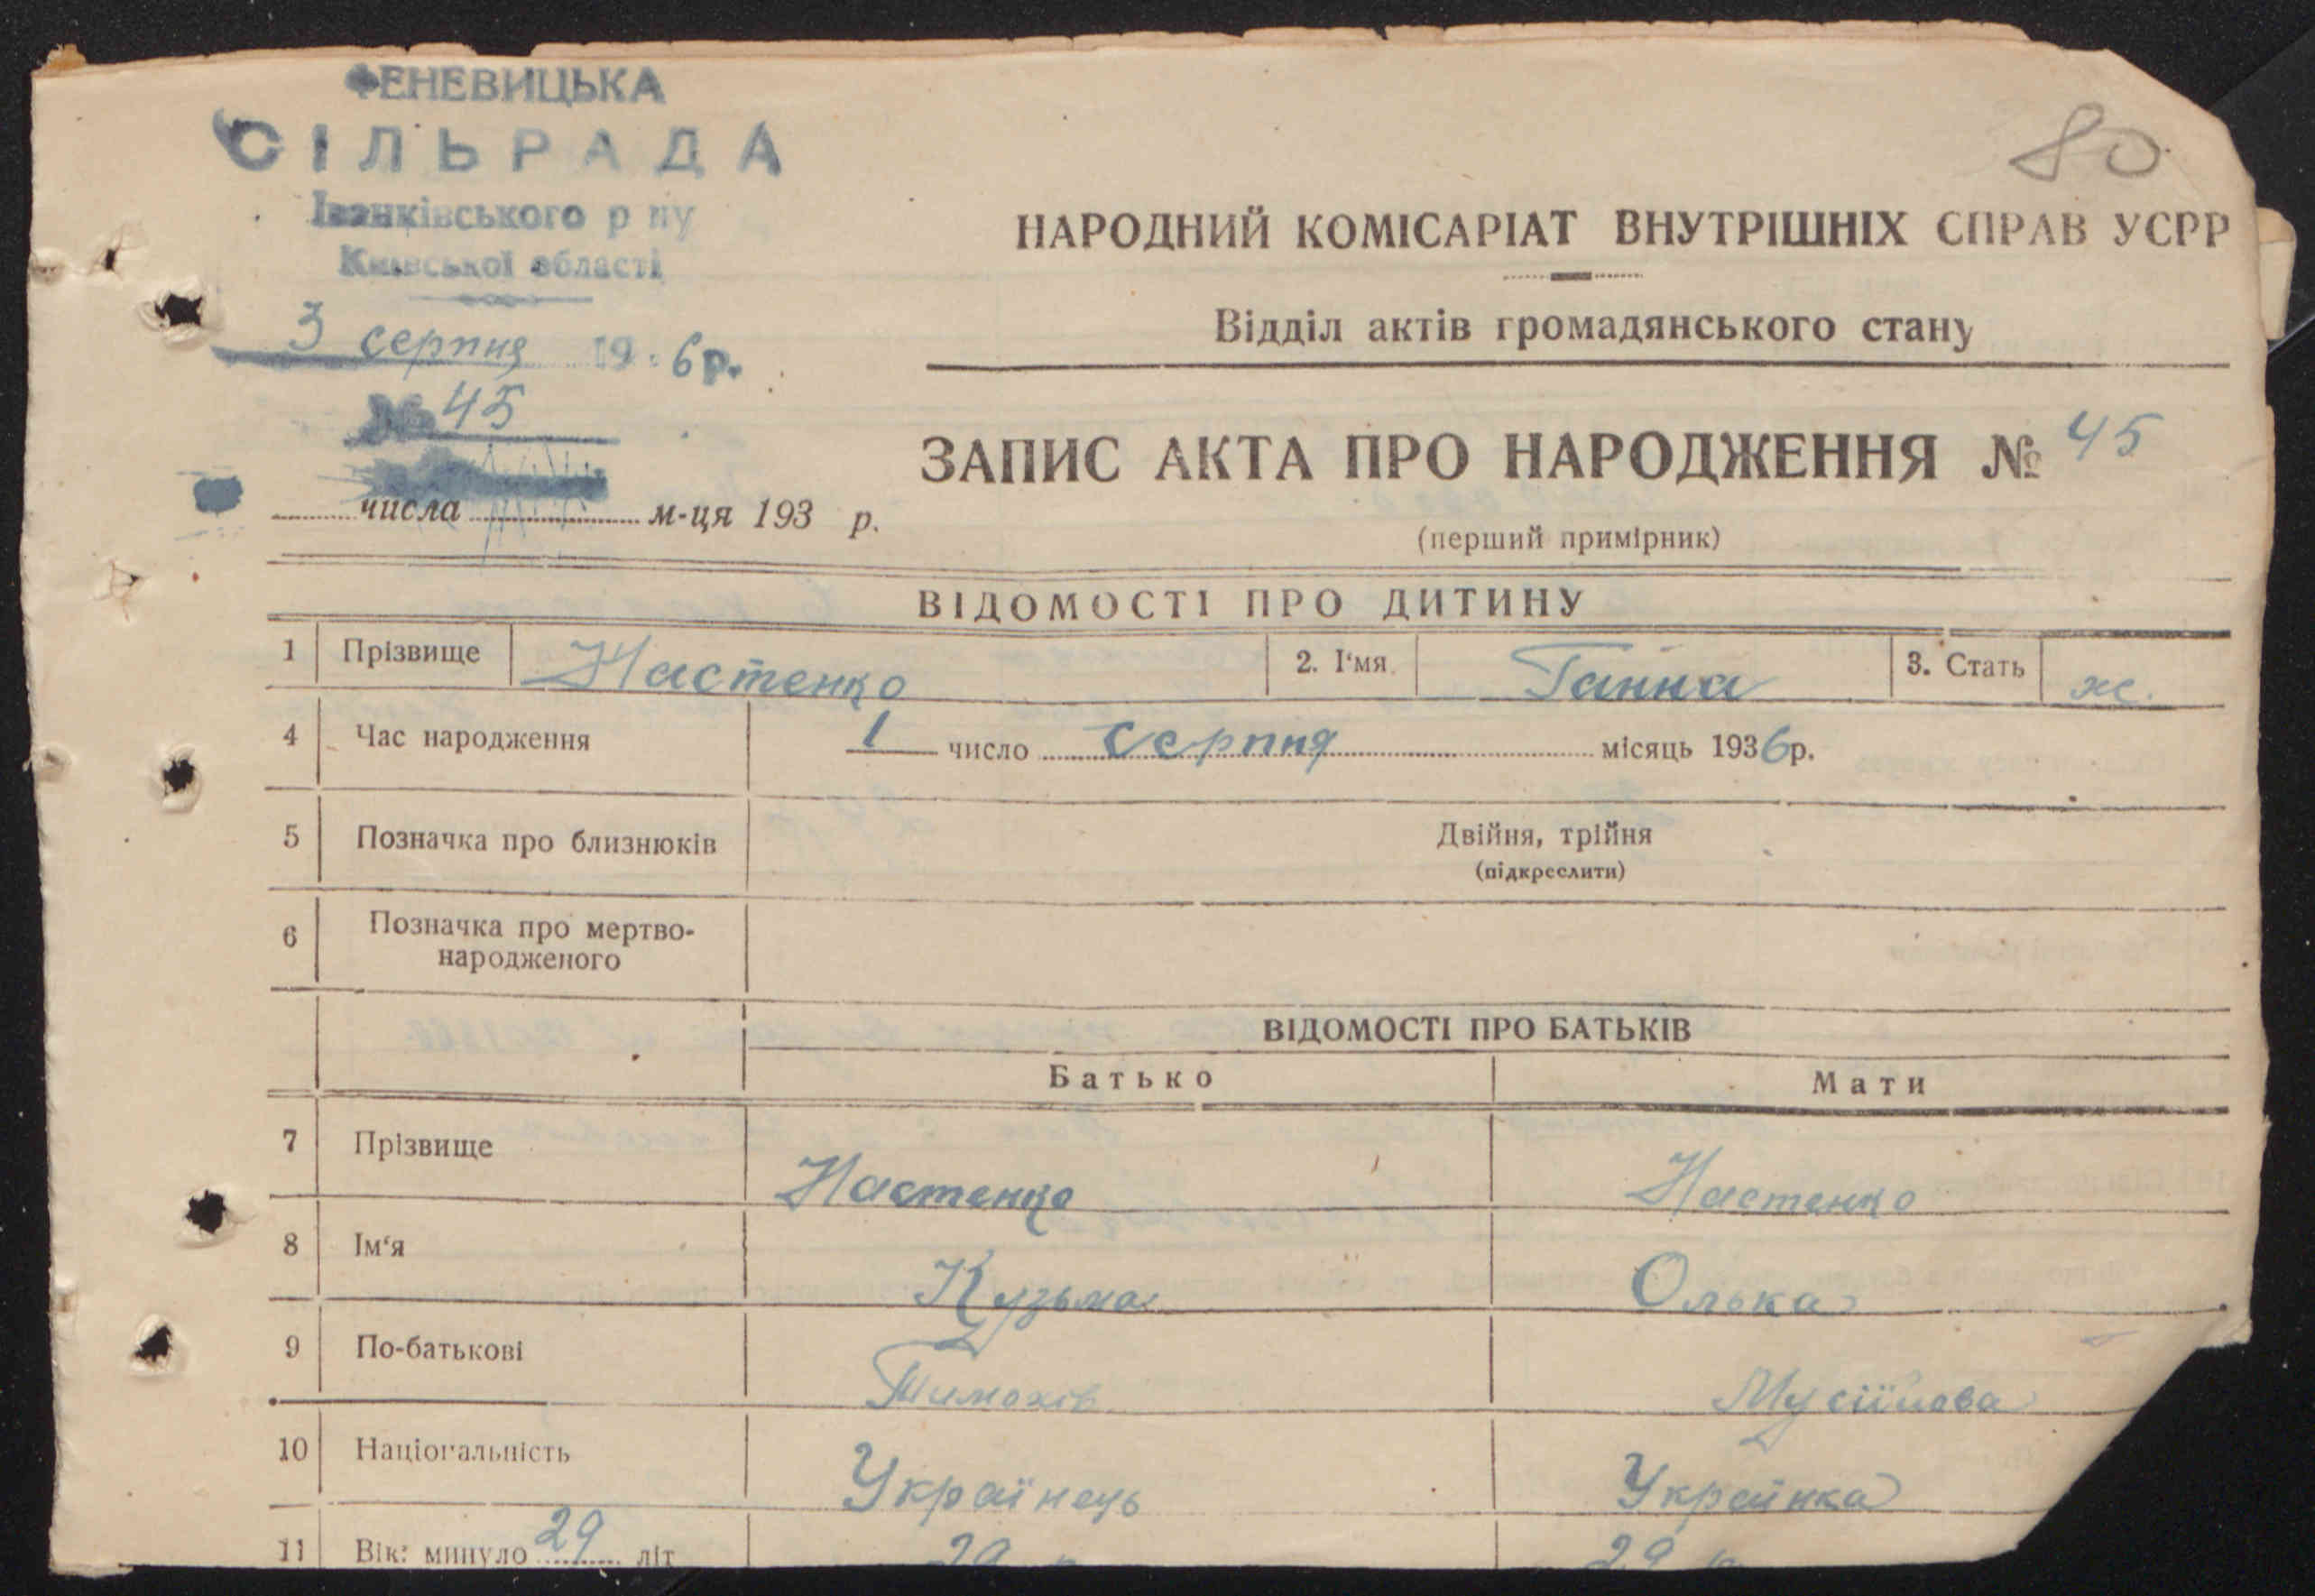 ФЕНЕВИЦЬКА
СІЛЬРАДА
Іванківського р ну
Київської області
3 серпня 19 6р.
№ 45
числа м-ця 193 р.
80
НАРОДНИЙ КОМІСАРІАТ ВНУТРІШНІХ СПРАВ УСРР
Відділ актів громадянського стану
ЗАПИС АКТА ПРО НАРОДЖЕННЯ № 45
(перший примірник)
ВІДОМОСТІ ПРО ДИТИНУ
1 Прізвище Настенко 2. І'мя Ганна 3. Стать ж.
4 Час народження 1 число серпня місяць 1936р.
5 Позначка про близнюків Двійня, трійня
(підкреслити)
6 Позначка про мертво-
народженого
ВІДОМОСТІ ПРО БАТЬКІВ
Батько Мати
7 Прізвище Настенко Настенко
8 Ім'я Кузьма Олька
9 По-батькові Тимохів Мусіїова
10 Національність Українець Українка
11 Вік: минуло 29 літ 29 р 29 р